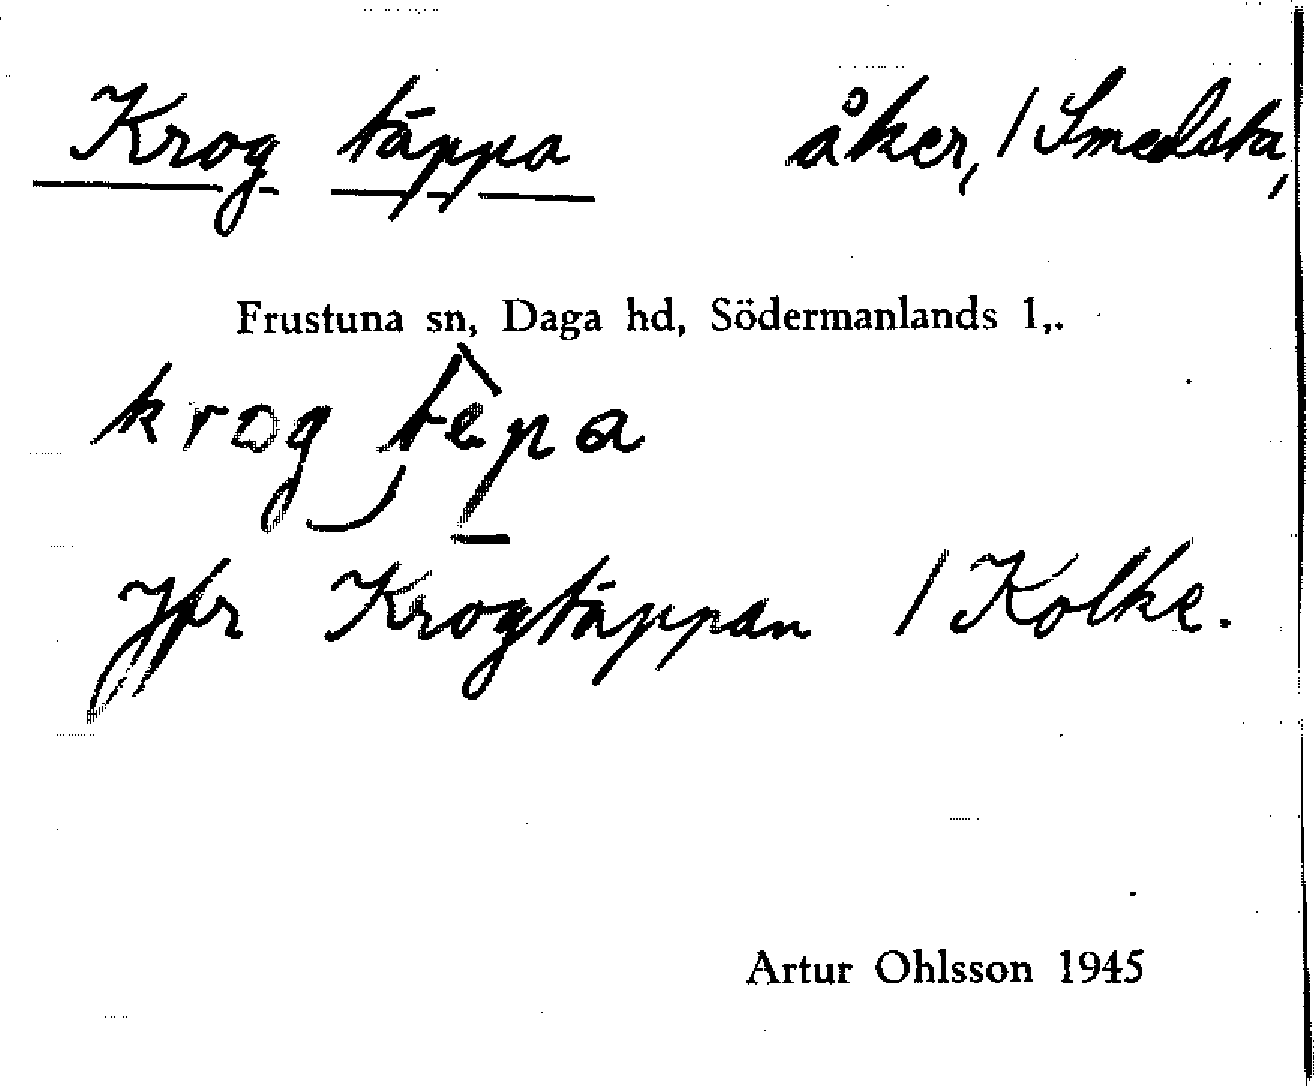 Krog täppa åker, / Smedsta,
Frustuna sn, Daga hd, Södermanlands l,.
krog tèpa
Jfr Krogtäppan / Kolke.
Artur Ohlsson 1945